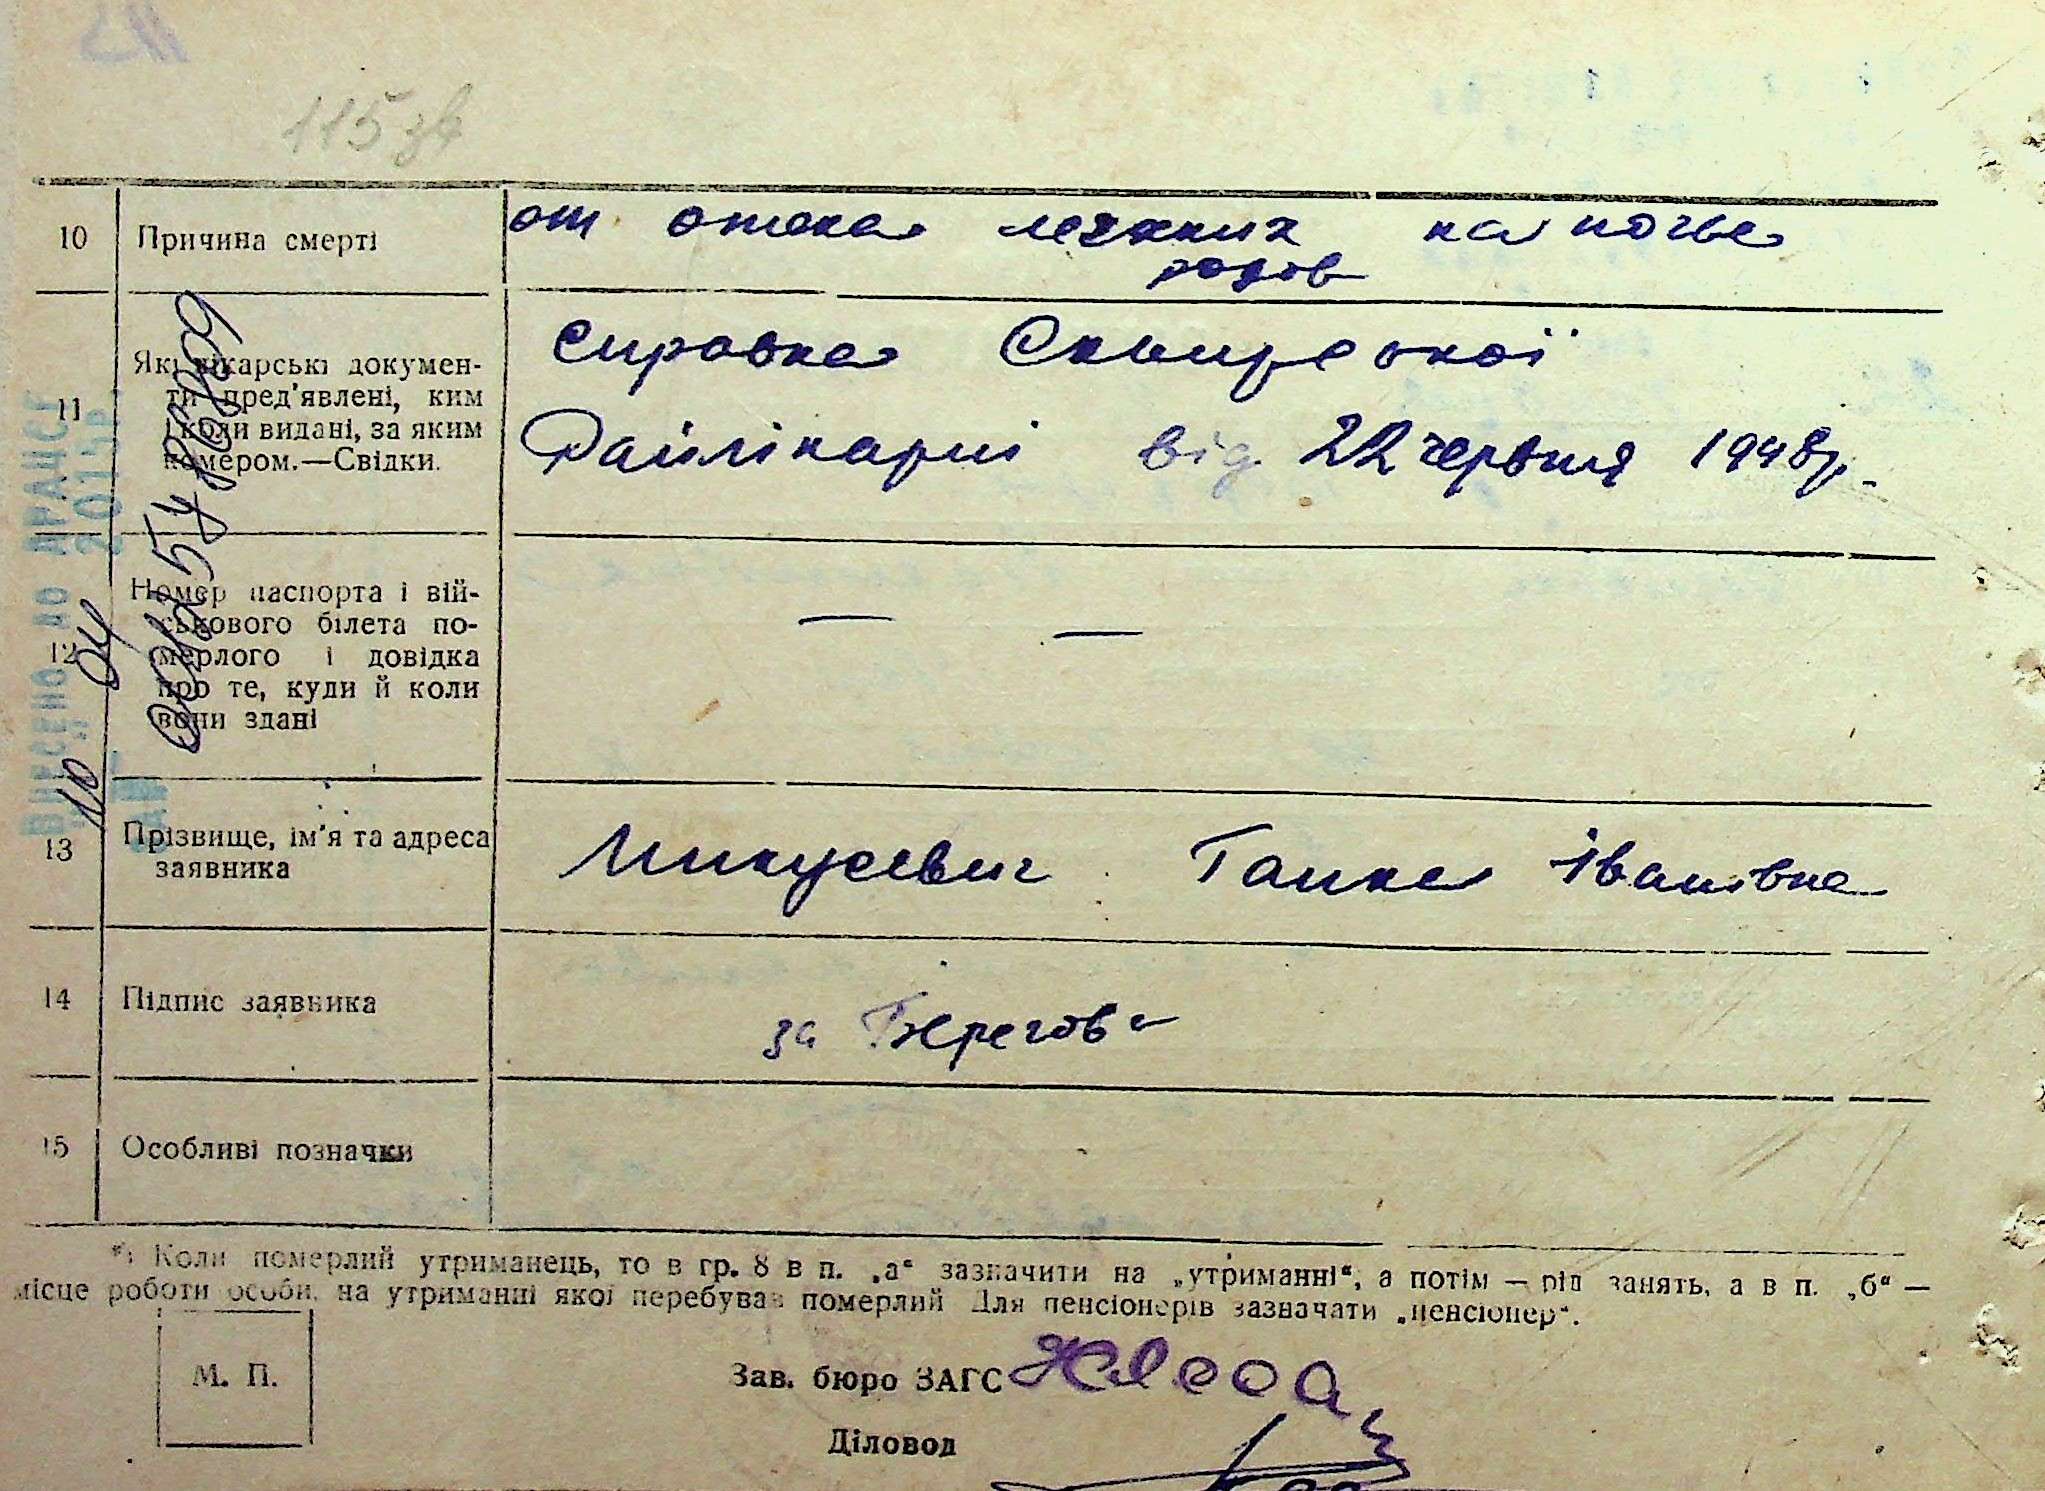 115зв
10 Причина смерті от отека легких на почве
родов
11 Які лікарські докумен-
ти пред'явлені, ким
і коли видані, за яким
номером.—Свідки.
справка Сквирської
Райлікарні від 22 червня 1948р.
12 Номер паспорта і вій-
ськового білета по-
мерлого і довідка
про те, куди й коли
вони здані
— —
13 Прізвище, ім'я та адреса
заявника
Ганна Іванівна
14 Підпис заявника за Берегова
15 Особливі позначки
*) Коли померлий утриманець, то в гр. 8 в п. „а“ зазначити на „утриманні“, а потім — рід занять, а в п. „б“ —
місце роботи особи, на утриманні якої перебував померлий Для пенсіонерів зазначати „пенсіонер“.
М. П.
Зав. бюро ЗАГС
Діловод
ВНЕСЕНО ДО ДРАЦСГ
10 04 2012р.